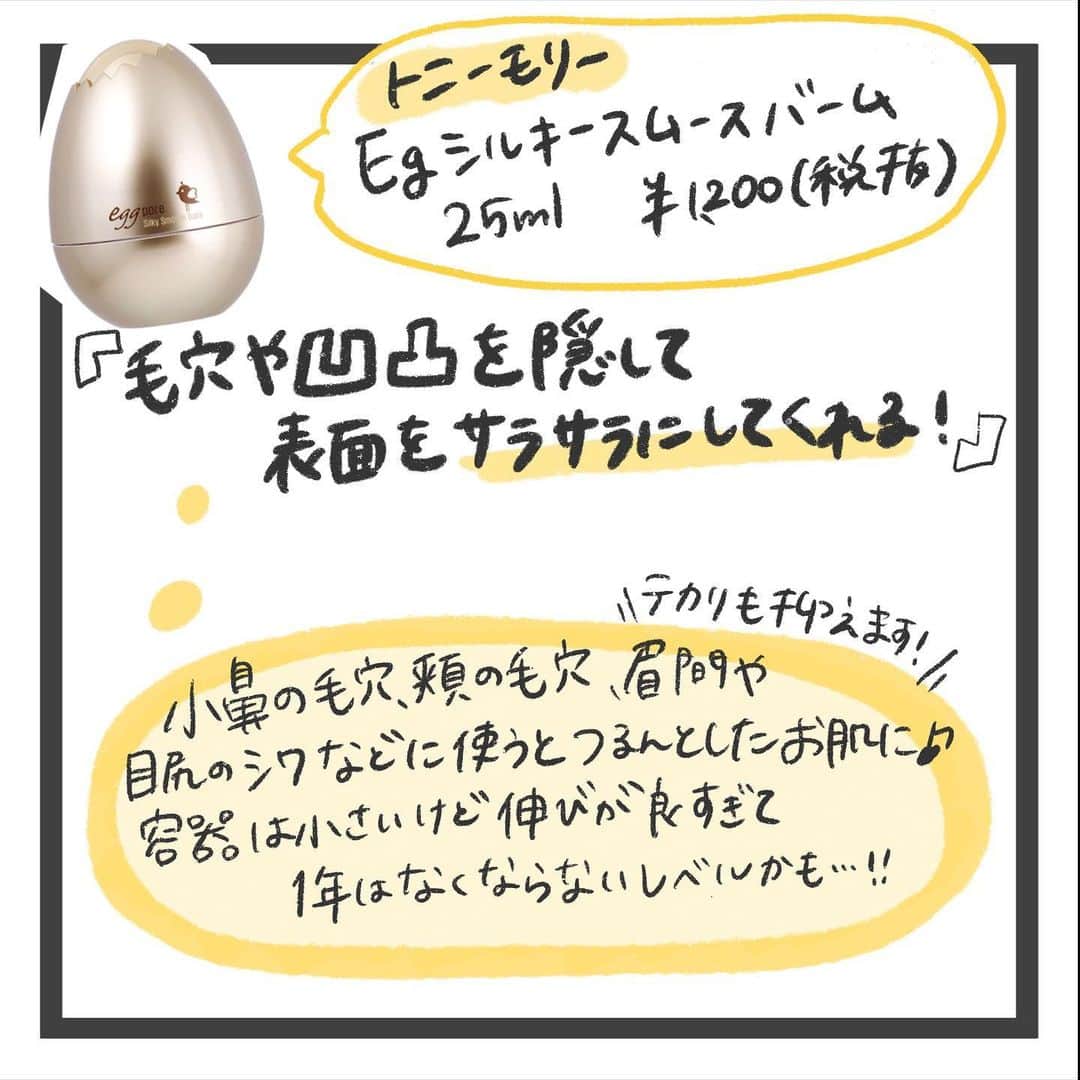 eggpore
Silky Smooth Balm
トニーモリー
Egシルキースムースバーム
25ml ¥1,200(税抜)
『毛穴や凹凸を隠して
表面をサラサラにしてくれる!』
\\テカリも抑えます!//
小鼻の毛穴、頬の毛穴、眉間や
目尻のシワなどに使うとつるんとしたお肌に♪
容器は小さいけど伸びが良すぎて
1年はなくならないレベルかも…!!